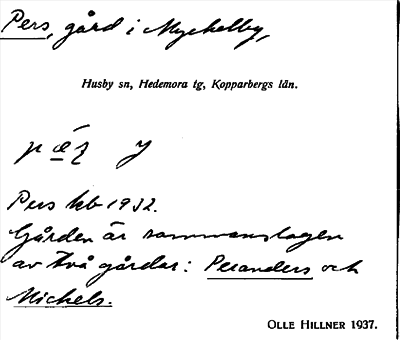 Pers, gård i Myckelby,
Husby sn, Hedemora tg, Kopparbergs län.
Pers kb 1932.
Gården är sammanslagen
av två gårdar: Peranders och
Michels.
OLLE HILLNER 1937.